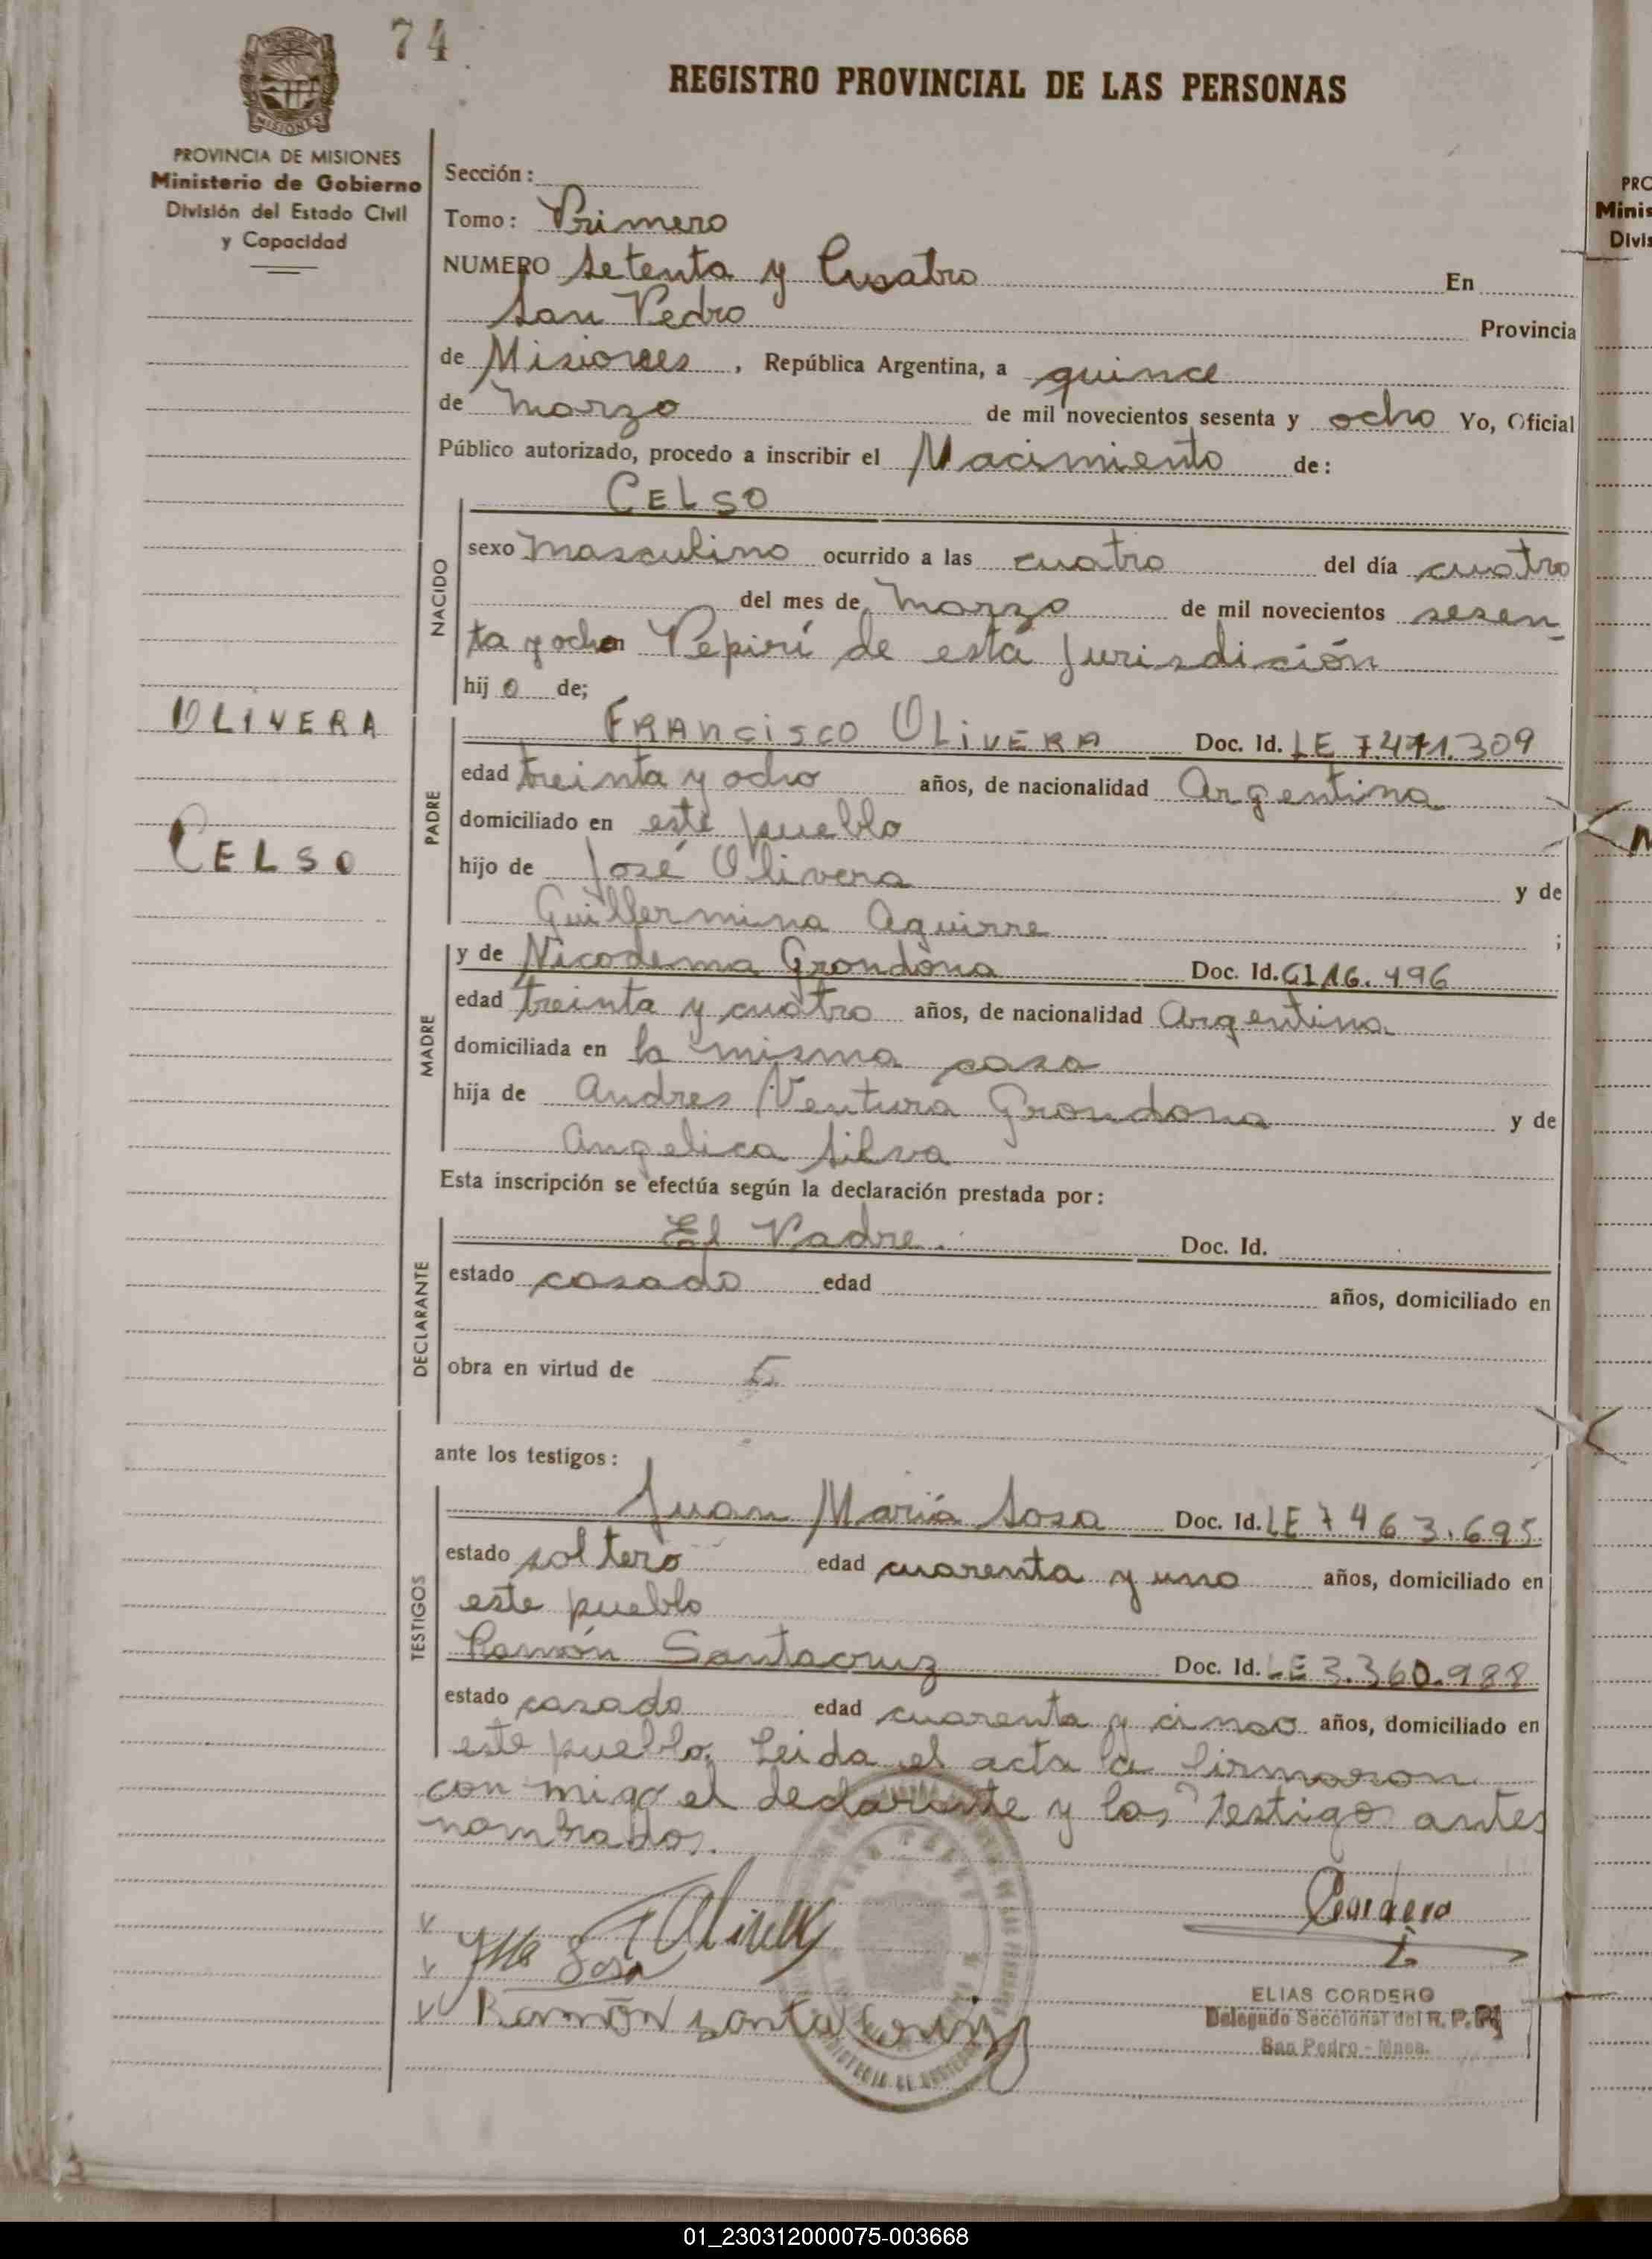 74
REGISTRO PROVINCIAL DE LAS PERSONAS
MISIONES
PROVINCIA DE MISIONES
Ministerio de Gobierno
División del Estado Civil
y Capacidad
Sección:
Tomo: Primero
NUMERO Setenta y Cuatro En
San Pedro Provincia
de Misiones, República Argentina, a quince
de Marzo de mil novecientos sesenta y ocho Yo, Oficial
Público autorizado, procedo a inscribir el Nacimiento de:
CELSO
NACIDO
sexo Masculino ocurrido a las cuatro del día cuatro
del mes de Marzo de mil novecientos sesen
ta y ocho en Pepirí de esta Jurisdición
hijo de;
OLIVERA
CELSO
PADRE
FRANCISCO OLIVERA Doc. Id. LE 7.471.309
edad treinta y ocho años, de nacionalidad Argentina
domiciliado en este pueblo
hijo de José Olivera y de
Guillermina Aguirre ;
MADRE
y de Nicodema Grondona Doc. Id. CI 116.496
edad treinta y cuatro años, de nacionalidad Argentina
domiciliada en la misma casa
hija de Andres Ventura Grondona y de
Angelica Silva
Esta inscripción se efectúa según la declaración prestada por:
DECLARANTE
El Padre. Doc. Id.
estado casado edad años, domiciliado en
obra en virtud de
ante los testigos:
TESTIGOS
Juan María Sosa Doc. Id. LE 7463.695
estado soltero edad cuarenta y uno años, domiciliado en
este pueblo
Ramón Santacruz Doc. Id. LE 3.360.988
estado casado edad cuarenta y cinco años, domiciliado en
este pueblo. Leida el acta la firmaron
con migo el declarante y los testigos antes
nombrados.
FOlivera
Sosa
Ramón Santa Cruz
Cordero
ELIAS CORDERO
Delegado Seccional del R. P. P.
San Pedro - Mnes.
PRO
Minis
Divis
01_230312000075-003668